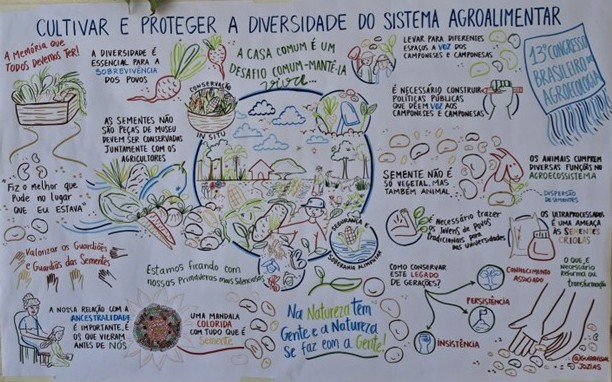 CULTIVAR E PROTEGER A DIVERSIDADE DO SISTEMA AGROALIMENTAR
A MEMÓRIA QUE
TODOS DEVEMOS TER!
A DIVERSIDADE É
ESSENCIAL PARA A
SOBREVIVÊNCIA
DOS POVOS
A CASA COMUM É UM
DESAFIO COMUM-MANTÊ-LA
VIVA...
LEVAR PARA DIFERENTES
ESPAÇOS A VOZ DOS
CAMPONESES E CAMPONESAS
13º CONGRESSO
BRASILEIRO DE
AGROECOLOGIA
CONSERVAÇÃO
IN SITU
É NECESSÁRIO CONSTRUIR
POLÍTICAS PÚBLICAS
QUE DÊEM VOZ AOS
CAMPONESES E CAMPONESAS
AS SEMENTES NÃO
SÃO PEÇAS DE MUSEU
DEVEM SER CONSERVADAS
JUNTAMENTE COM OS
AGRICULTORES
"FIZ O MELHOR QUE
PUDE NO LUGAR
QUE EU ESTAVA"
SEMENTE NÃO É
SÓ VEGETAL, MAS
TAMBÉM ANIMAL
OS ANIMAIS CUMPREM
DIVERSAS FUNÇÕES NO
AGROECOSSISTEMA
DISPERSÃO
DE SEMENTES
Valorizar os Guardiões
e Guardiãs das Sementes
SEGURANÇA E
SOBERANIA ALIMENTAR
É necessário trazer
os Jovens de Povos
Tradicionais para
as Universidades
OS ULTRAPROCESSADOS
É UMA AMEAÇA
ÀS SEMENTES
CRIOLAS
Estamos ficando com
nossas Primaveras mais Silenciosas
COMO CONSERVAR
ESTE LEGADO
DE GERAÇÕES?
CONHECIMENTO
ASSOCIADO
O QUE É
NECESSÁRIO
transformação
PERSISTÊNCIA
INSISTÊNCIA
A NOSSA RELAÇÃO COM A
ANCESTRALIDADE
É IMPORTANTE, É
OS QUE VIERAM
ANTES DE NÓS
UMA MANDALA
COLORIDA
COM TUDO QUE É
Semente
Na Natureza tem
Gente e a Natureza
Se faz com a Gente!